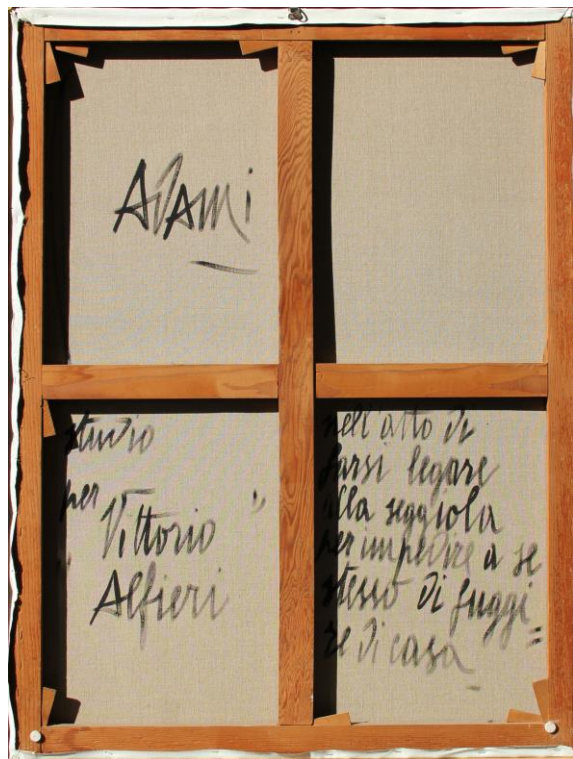 Adami
studio
per
"Vittorio"
Alfieri
nell'atto di
farsi legare
alla seggiola
per impedire a se
stesso di fuggi=
re di casa